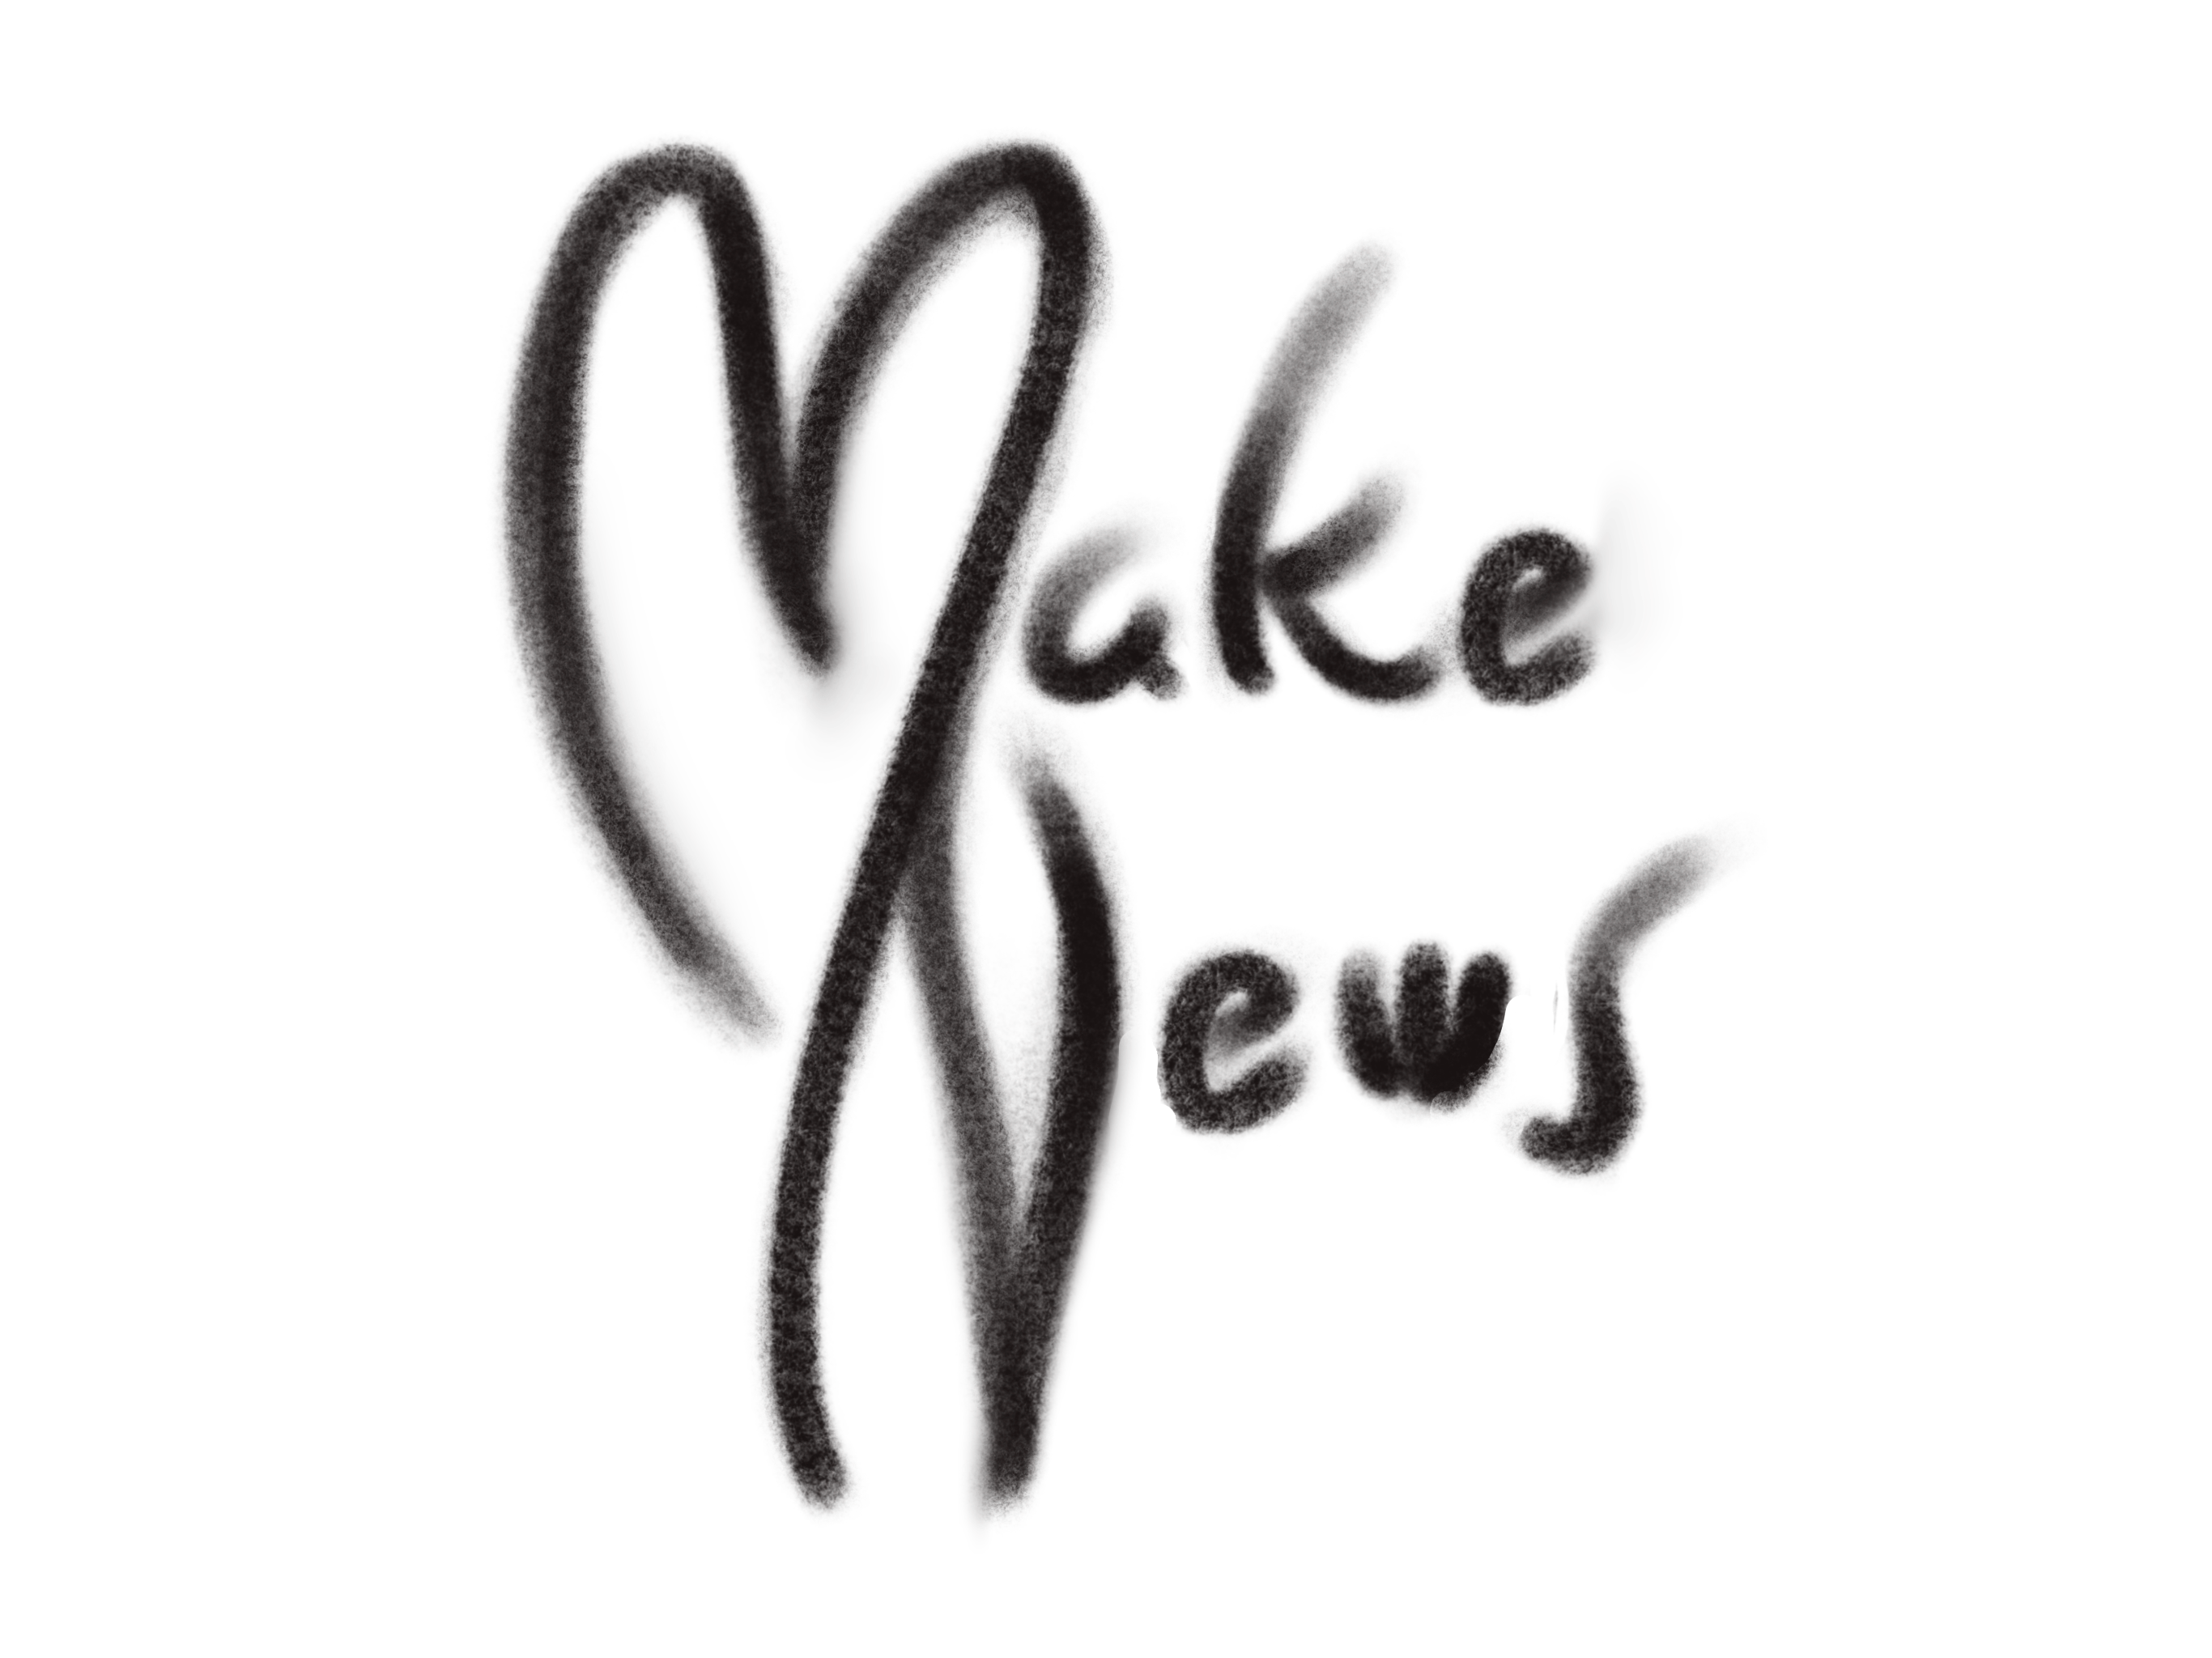 Make
News